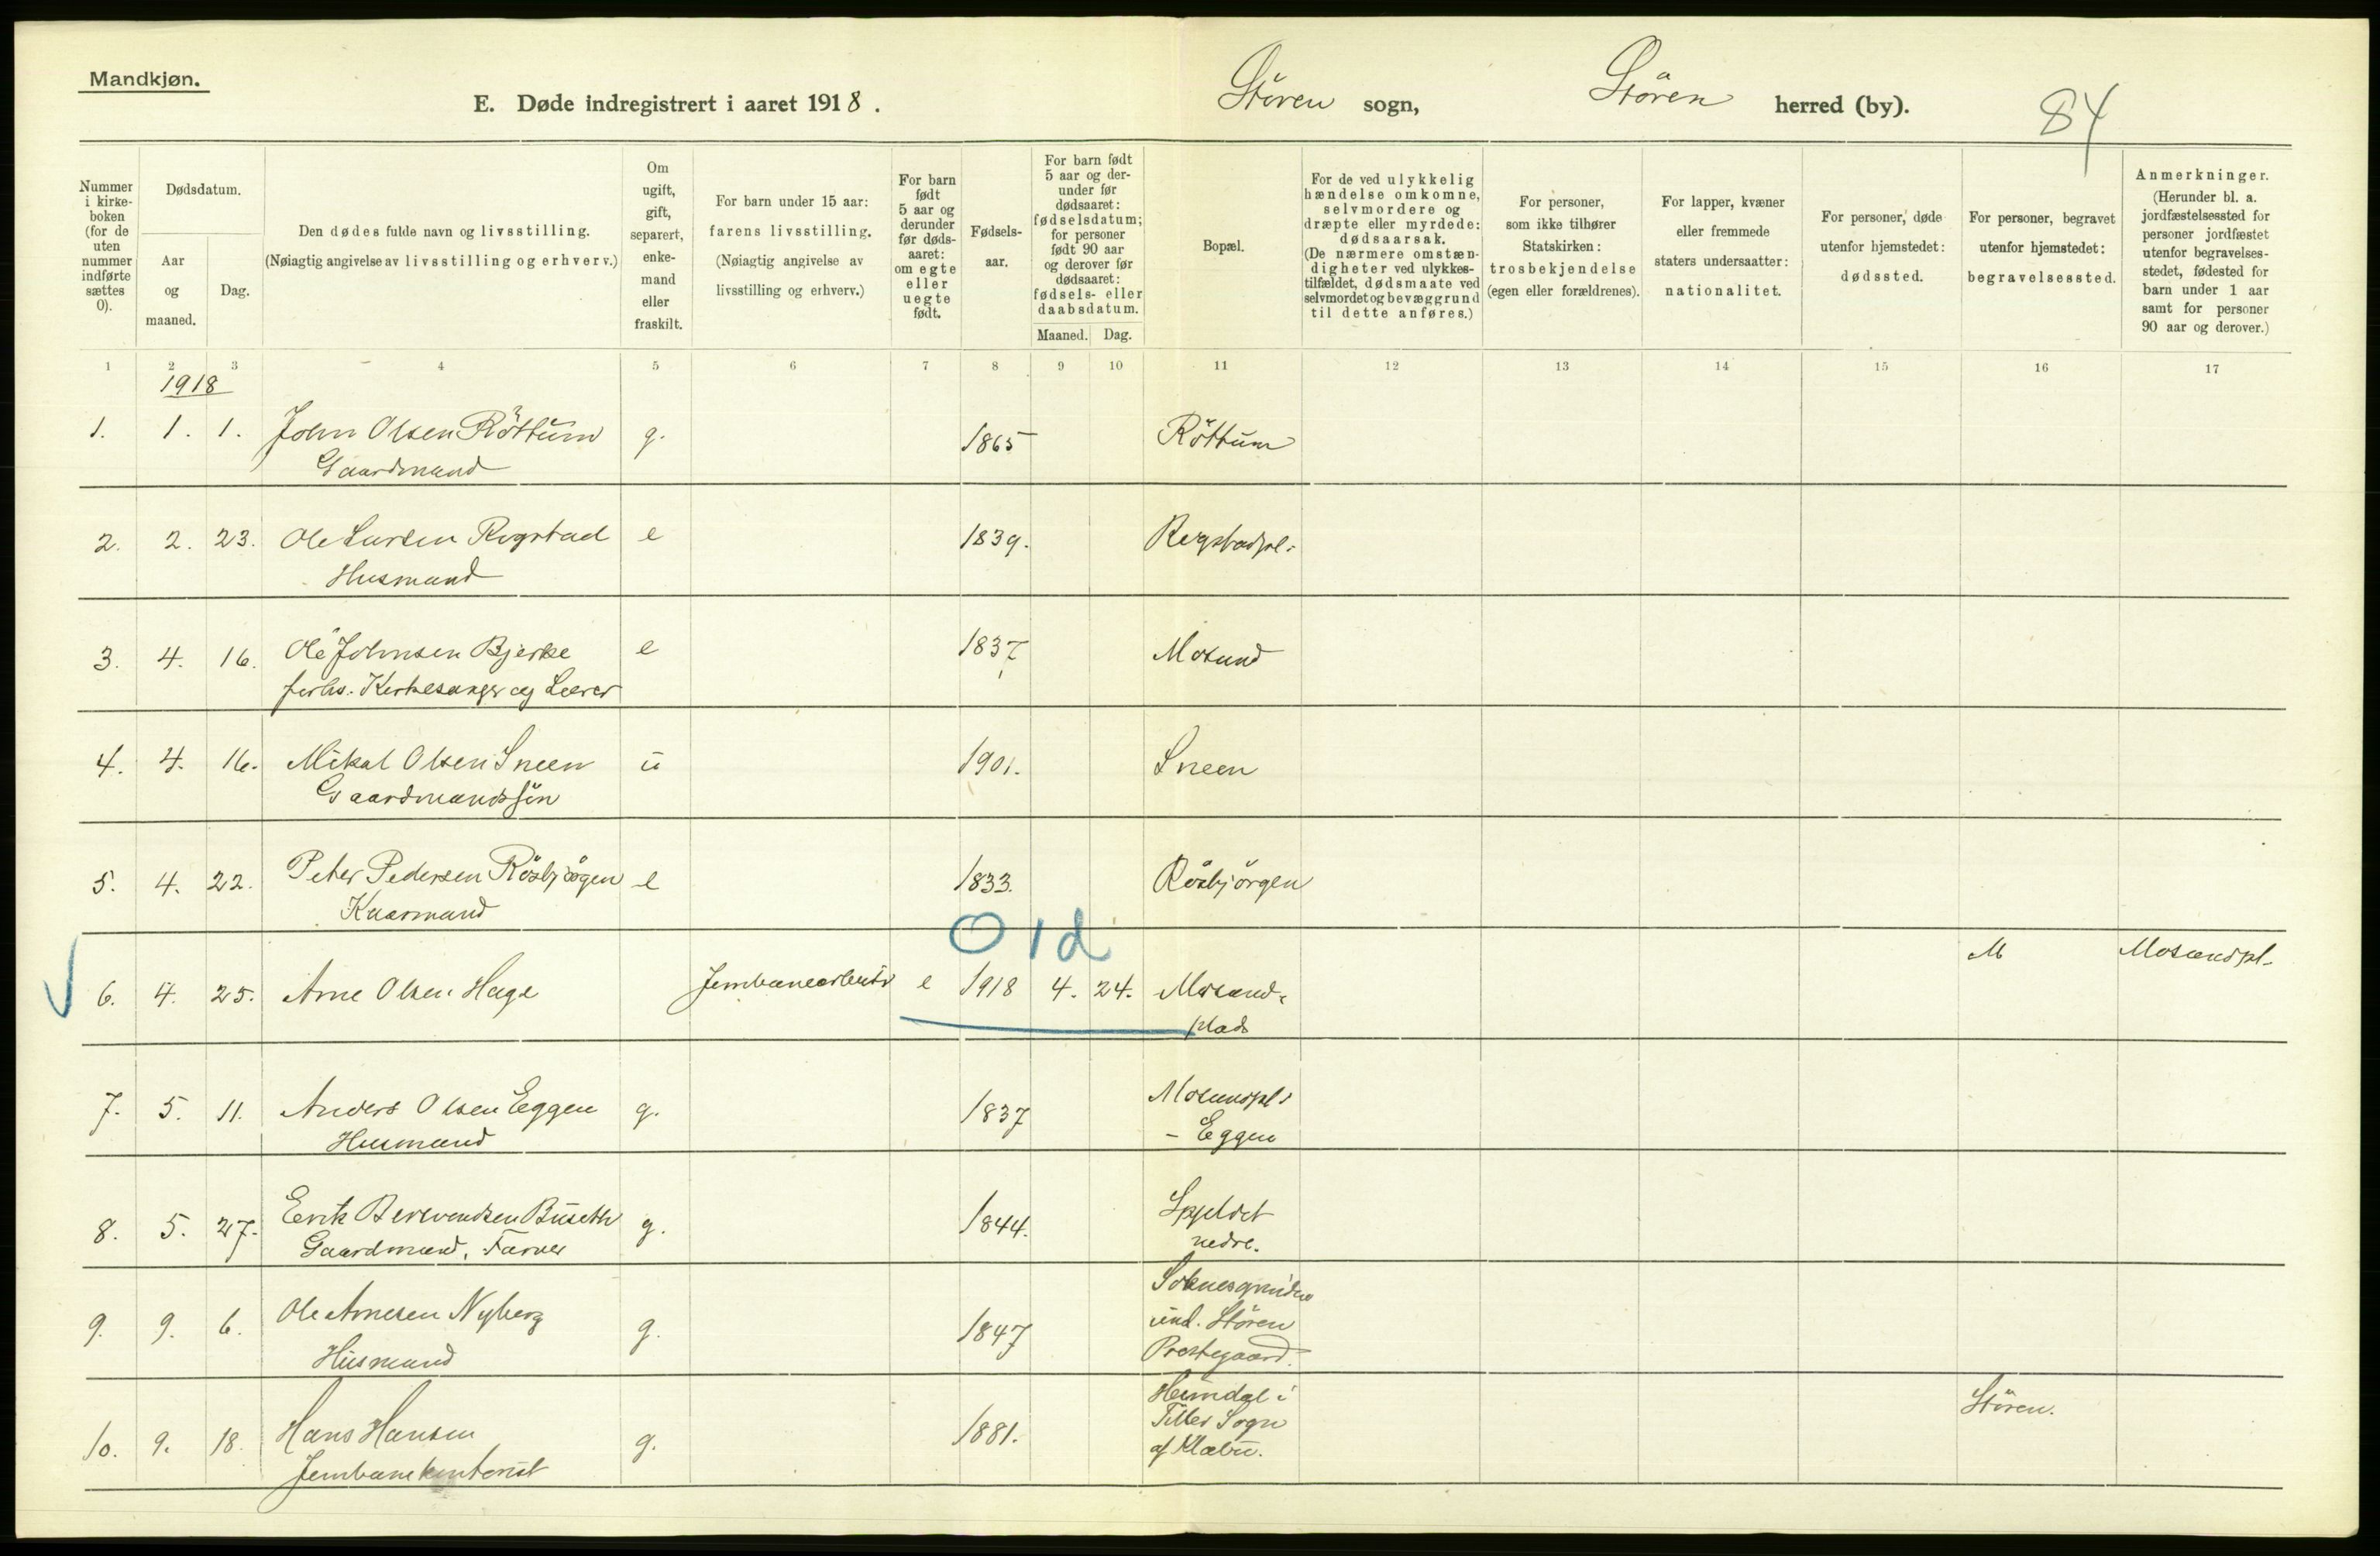 Mandkjøn.
E. Døde indregistrert i aaret 1918.
Stören sogn,
Stören herred (by).
84
Nummer i kirke-boken (for de uten nummer indførte sættes 0).
Dødsdatum.
Aar og maaned.
Dag.
Den dødes fulde navn og livsstilling.
(Nøiagtig angivelse av livsstilling og erhverv.)
Om ugift, gift, separert, enke-mand eller fraskilt.
For barn under 15 aar: farens livsstilling.
(Nøiagtig angivelse av livsstilling og erhverv.)
For barn født 5 aar og derunder før døds-aaret: om egte eller uegte født.
Fødsels-aar.
For barn født 5 aar og der-under før dødsaaret: fødselsdatum; for personer født 90 aar og derover før dødsaaret: fødsels- eller daabsdatum.
Maaned. Dag.
Bopæl.
For de ved ulykkelig hændelse omkomne, selvmordere og dræpte eller myrdede: dødsaarsak.
(De nærmere omstæn-digheter ved ulykkes-tilfældet, dødsmaate ved selvmordet og bevæggrund til dette anføres.)
For personer, som ikke tilhører Statskirken: trosbekjendelse (egen eller forældrenes).
For lapper, kvæner eller fremmede staters undersaatter: nationalitet.
For personer, døde utenfor hjemstedet: dødssted.
For personer, begravet utenfor hjemstedet: begravelsessted.
Anmerkninger.
(Herunder bl. a. jordfæstelsessted for personer jordfæstet utenfor begravelses-stedet, fødested for barn under 1 aar samt for personer 90 aar og derover.)
1 2 3 4 5 6 7 8 9 10 11 12 13 14 15 16 17
1918
1. 1. 1. John Olsen Röttum g. 1865 Röttum
Gaardmand
2. 2. 23. Ole Larsen Rogstad e 1839. Rogstadpl.
Husmand
3. 4. 16. Ole Johnsen Bjerke e 1837 Mosand
forhv. Kirkesanger og Lærer
4. 4. 16. Mikal Olsen Sneen u 1901. Sneen
Gaardmandssön
5. 4. 22. Peter Pedersen Rösbjörgen e 1833. Rösbjörgen
Kaarmand
Old
M Mosandpl.
6. 4. 25. Arne Olsen Hage Jernbanearbeider e 1918 4. 24. Mosand-
plads
7. 5. 11. Anders Olsen Eggen g. 1837 Mosandpl.
Husmand - Eggen
8. 5. 27. Erik Buseth g. 1844. Spjeldet
Gaardmand, Farver nedre.
9. 9. 6. Ole Arnesen Nyberg g. 1847 Soknesgrinden
und. Stören
Husmand Prestegaard.
10. 9. 18. Hans Hansen g. 1881. Heimdal i Stören.
Tiller Sogn
Jernbanekontorist af Klæbu.